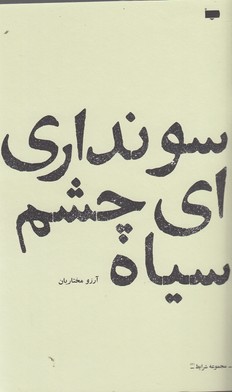 سونداری
ای چشم
سیاه
آرزو مختاریان
مجموعه شرایط